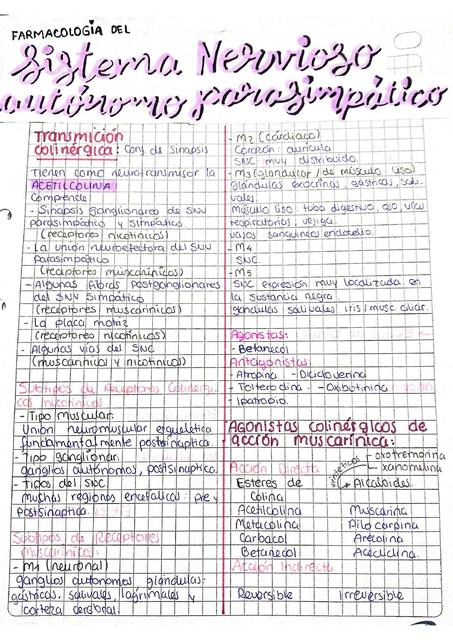 FARMACOLOGÍA DEL
Sistema Nervioso
autónomo parasimpático
Transmición
colinérgica: Conj de Sinapsis
Tienen como neurotransmisor la
ACETILCOLINA
Comprende
- Sinapsis ganglionares de SNV
parasimpático y simpático
(receptores nicotínicos)
- La unión neuroefectora del SNV
Parasimpático
(receptores muscarínicos)
- Algunas fibras Postganglionares
del SNV Simpático
(receptores muscarinicos)
- La placa motriz
(receptores nicotínicos)
- Algunas vías del SNC
(muscarínicos y nicotínicos)
Subtipos de Receptores Colinérgi-
cos nicotínicos
- Tipo Muscular:
Unión neuromuscular esquelética
fundamentalmente postsináptica.
- Tipo ganglionar:
ganglios autónomos, postsináptica.
- Tipos del SNC
muchas regiones encefálicas: pre y
Postsináptica.
Subtipos de Receptores
muscarínicos:
- M1 (neuronal)
ganglios autonomos, glándulas:
gástricas, salivales, lagrimales y
corteza cerebral.
- M2 (cardiaco)
Corazón: aurícula
SNC: muy distribuido.
- M3 (glandular / de músculo liso)
Glándulas exocrinas, gástricas, sali-
vales
Músculo liso: tubo digestivo, ojo, vías
respiratorias, vejiga.
vasos sanguíneos: endotelio.
- M4
SNC.
- M5
SNC expresión muy localizada en
la sustancia negra.
glándulas salivales iris/musc ciliar.
Agonistas:
- Betanecol
Antagonistas:
- Atropina - Dicicloverina
- Tolterodina - Oxibutinina
- Ipatropio.
Agonistas colinérgicos de
acción muscarínica:
oxotremorina
Acción Directa
sintéticos
xanomulina
Esteres de
Alcaloides.
Colina
Acetilcolina Muscarina
Metacolina Pilocarpina
Carbacol Arecolina
Betanecol Aceclidina.
Acción Indirecta
Reversible Irreversible